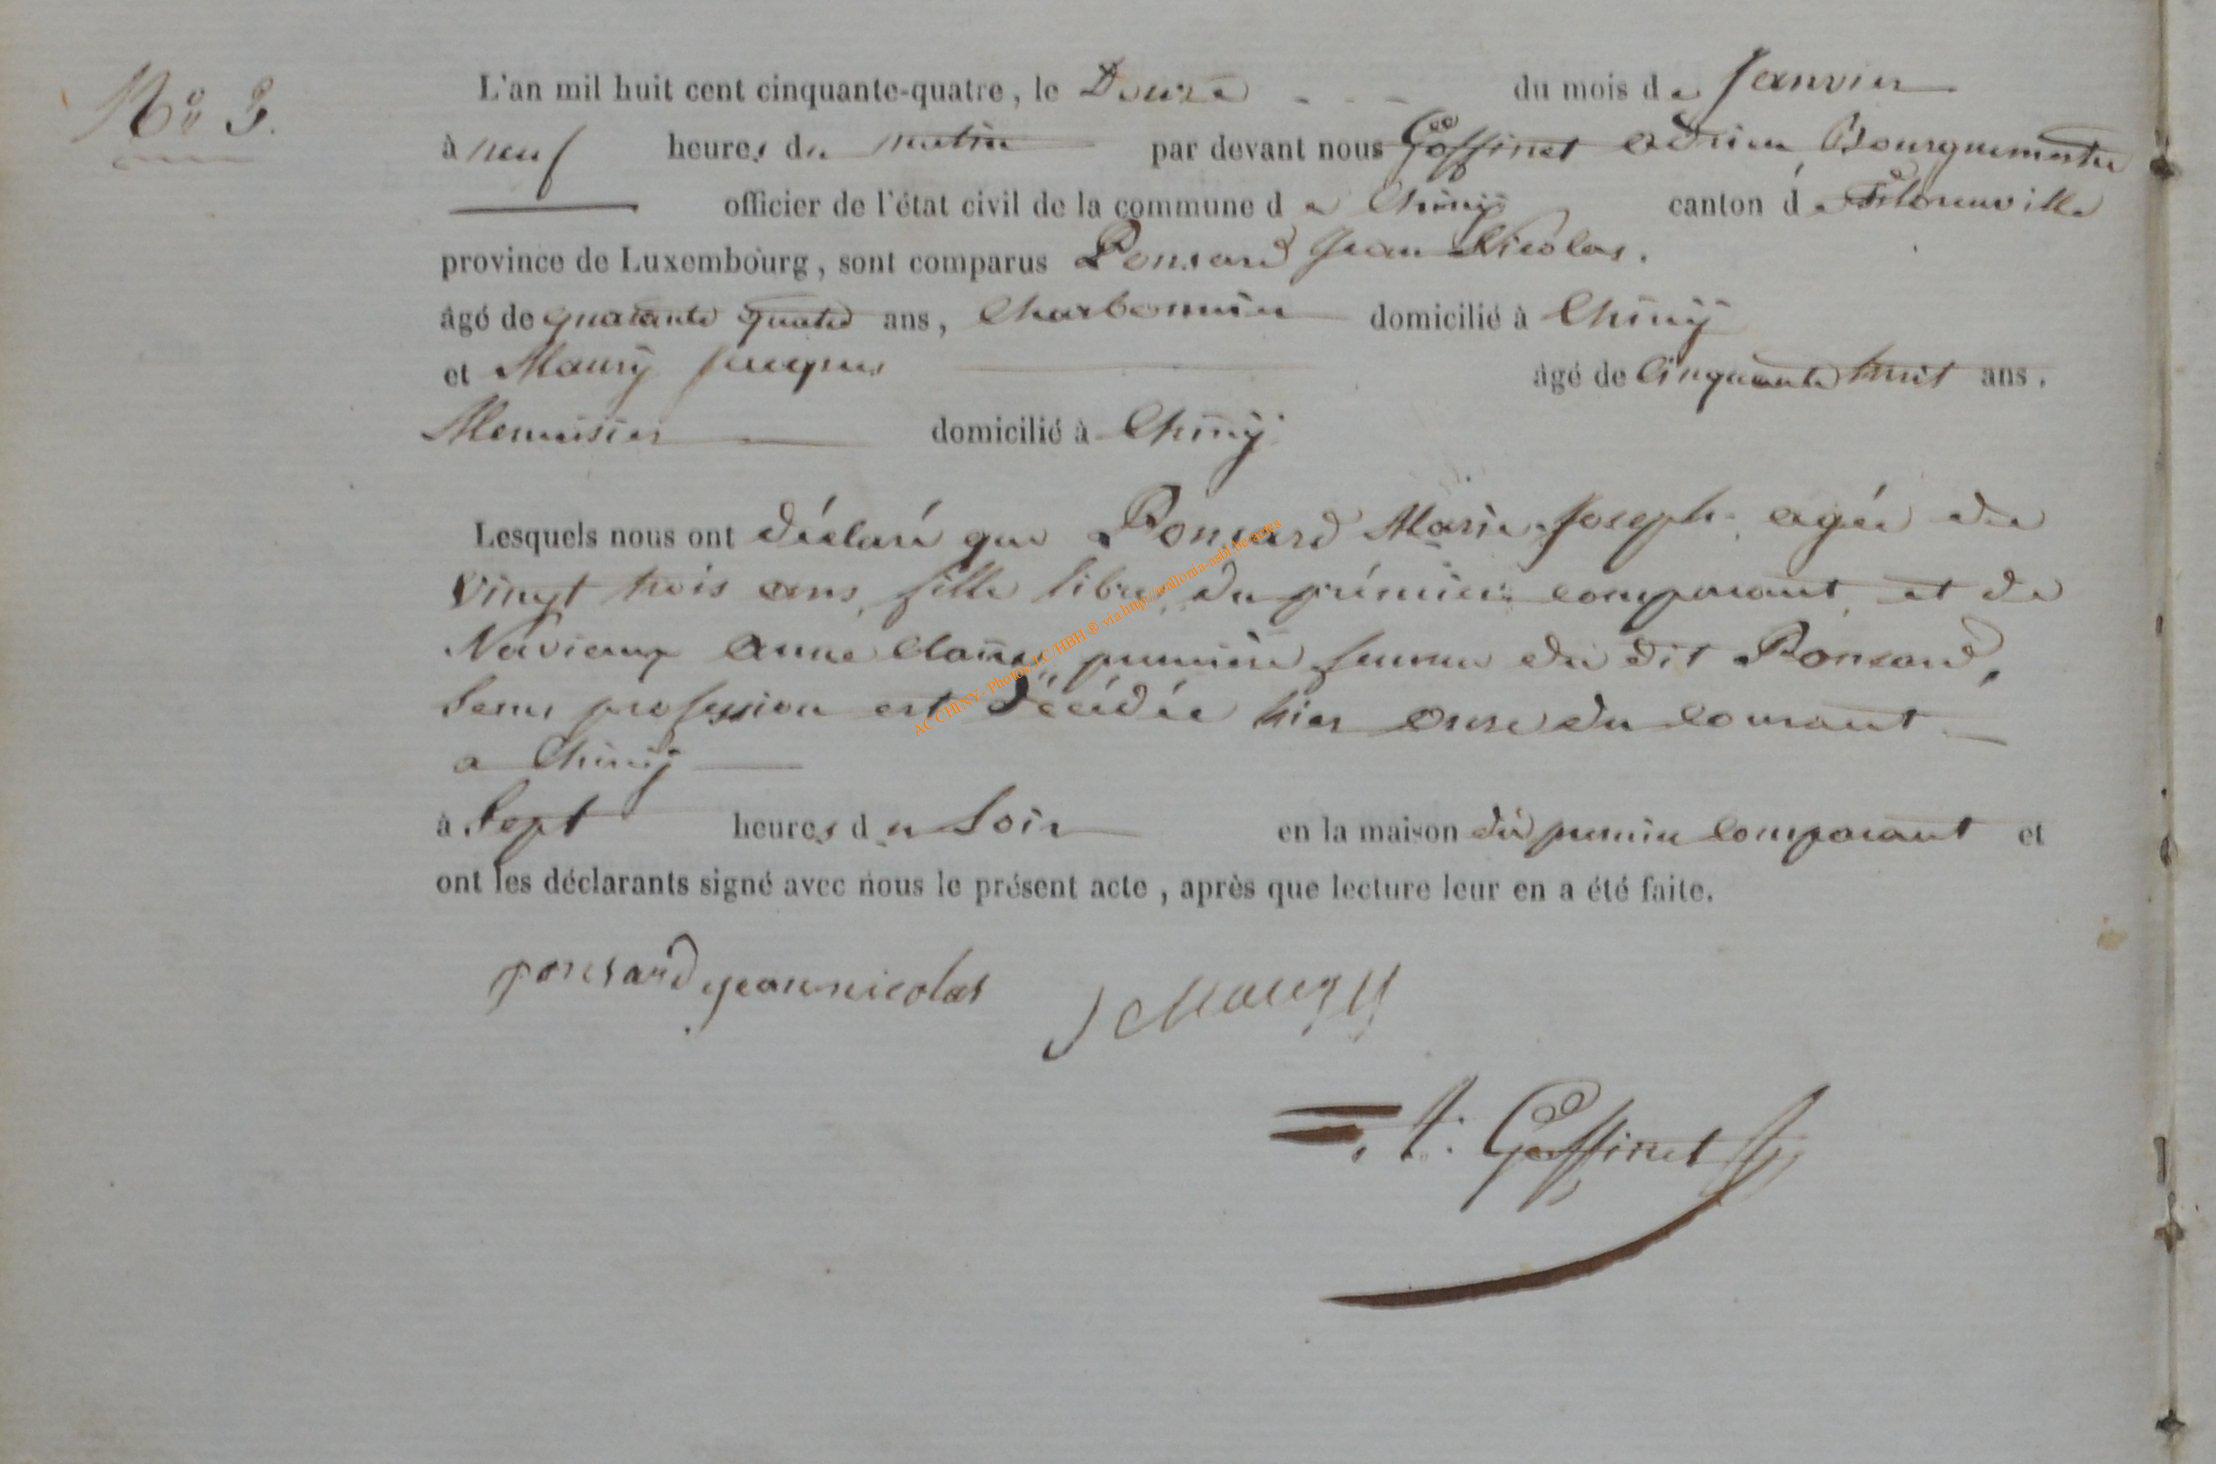 N° 3.
L'an mil huit cent cinquante-quatre, le Douze du mois de Janvier
à neuf heures du matin par devant nous Goffinet Adrien Bourguemestre
officier de l'état civil de la commune de Chinÿ canton de Florenville
province de Luxembourg, sont comparus Ponsard Jean Nicolas.
âgé de quarante quatre ans, Charbonnier domicilié à Chinÿ
et Maurÿ Jacques âgé de Cinquante huit ans,
Menuisier domicilié à Chinÿ
Lesquels nous ont déclaré que Ponsard Marie Joseph. agée de
vingt trois ans, fille libre du prémier comparant et de
Anne première femme du dit Ponsard,
sans profession est décédée hier onze du courant
a Chinÿ
à Sept heures du Soir en la maison du premier comparant et
ont les déclarants signé avec nous le présent acte, après que lecture leur en a été faite.
ponsard jean nicolas J Maury
A. Goffinet
AC CHINY - Photos LC/HBH ® via http://wallonia-asbl.be